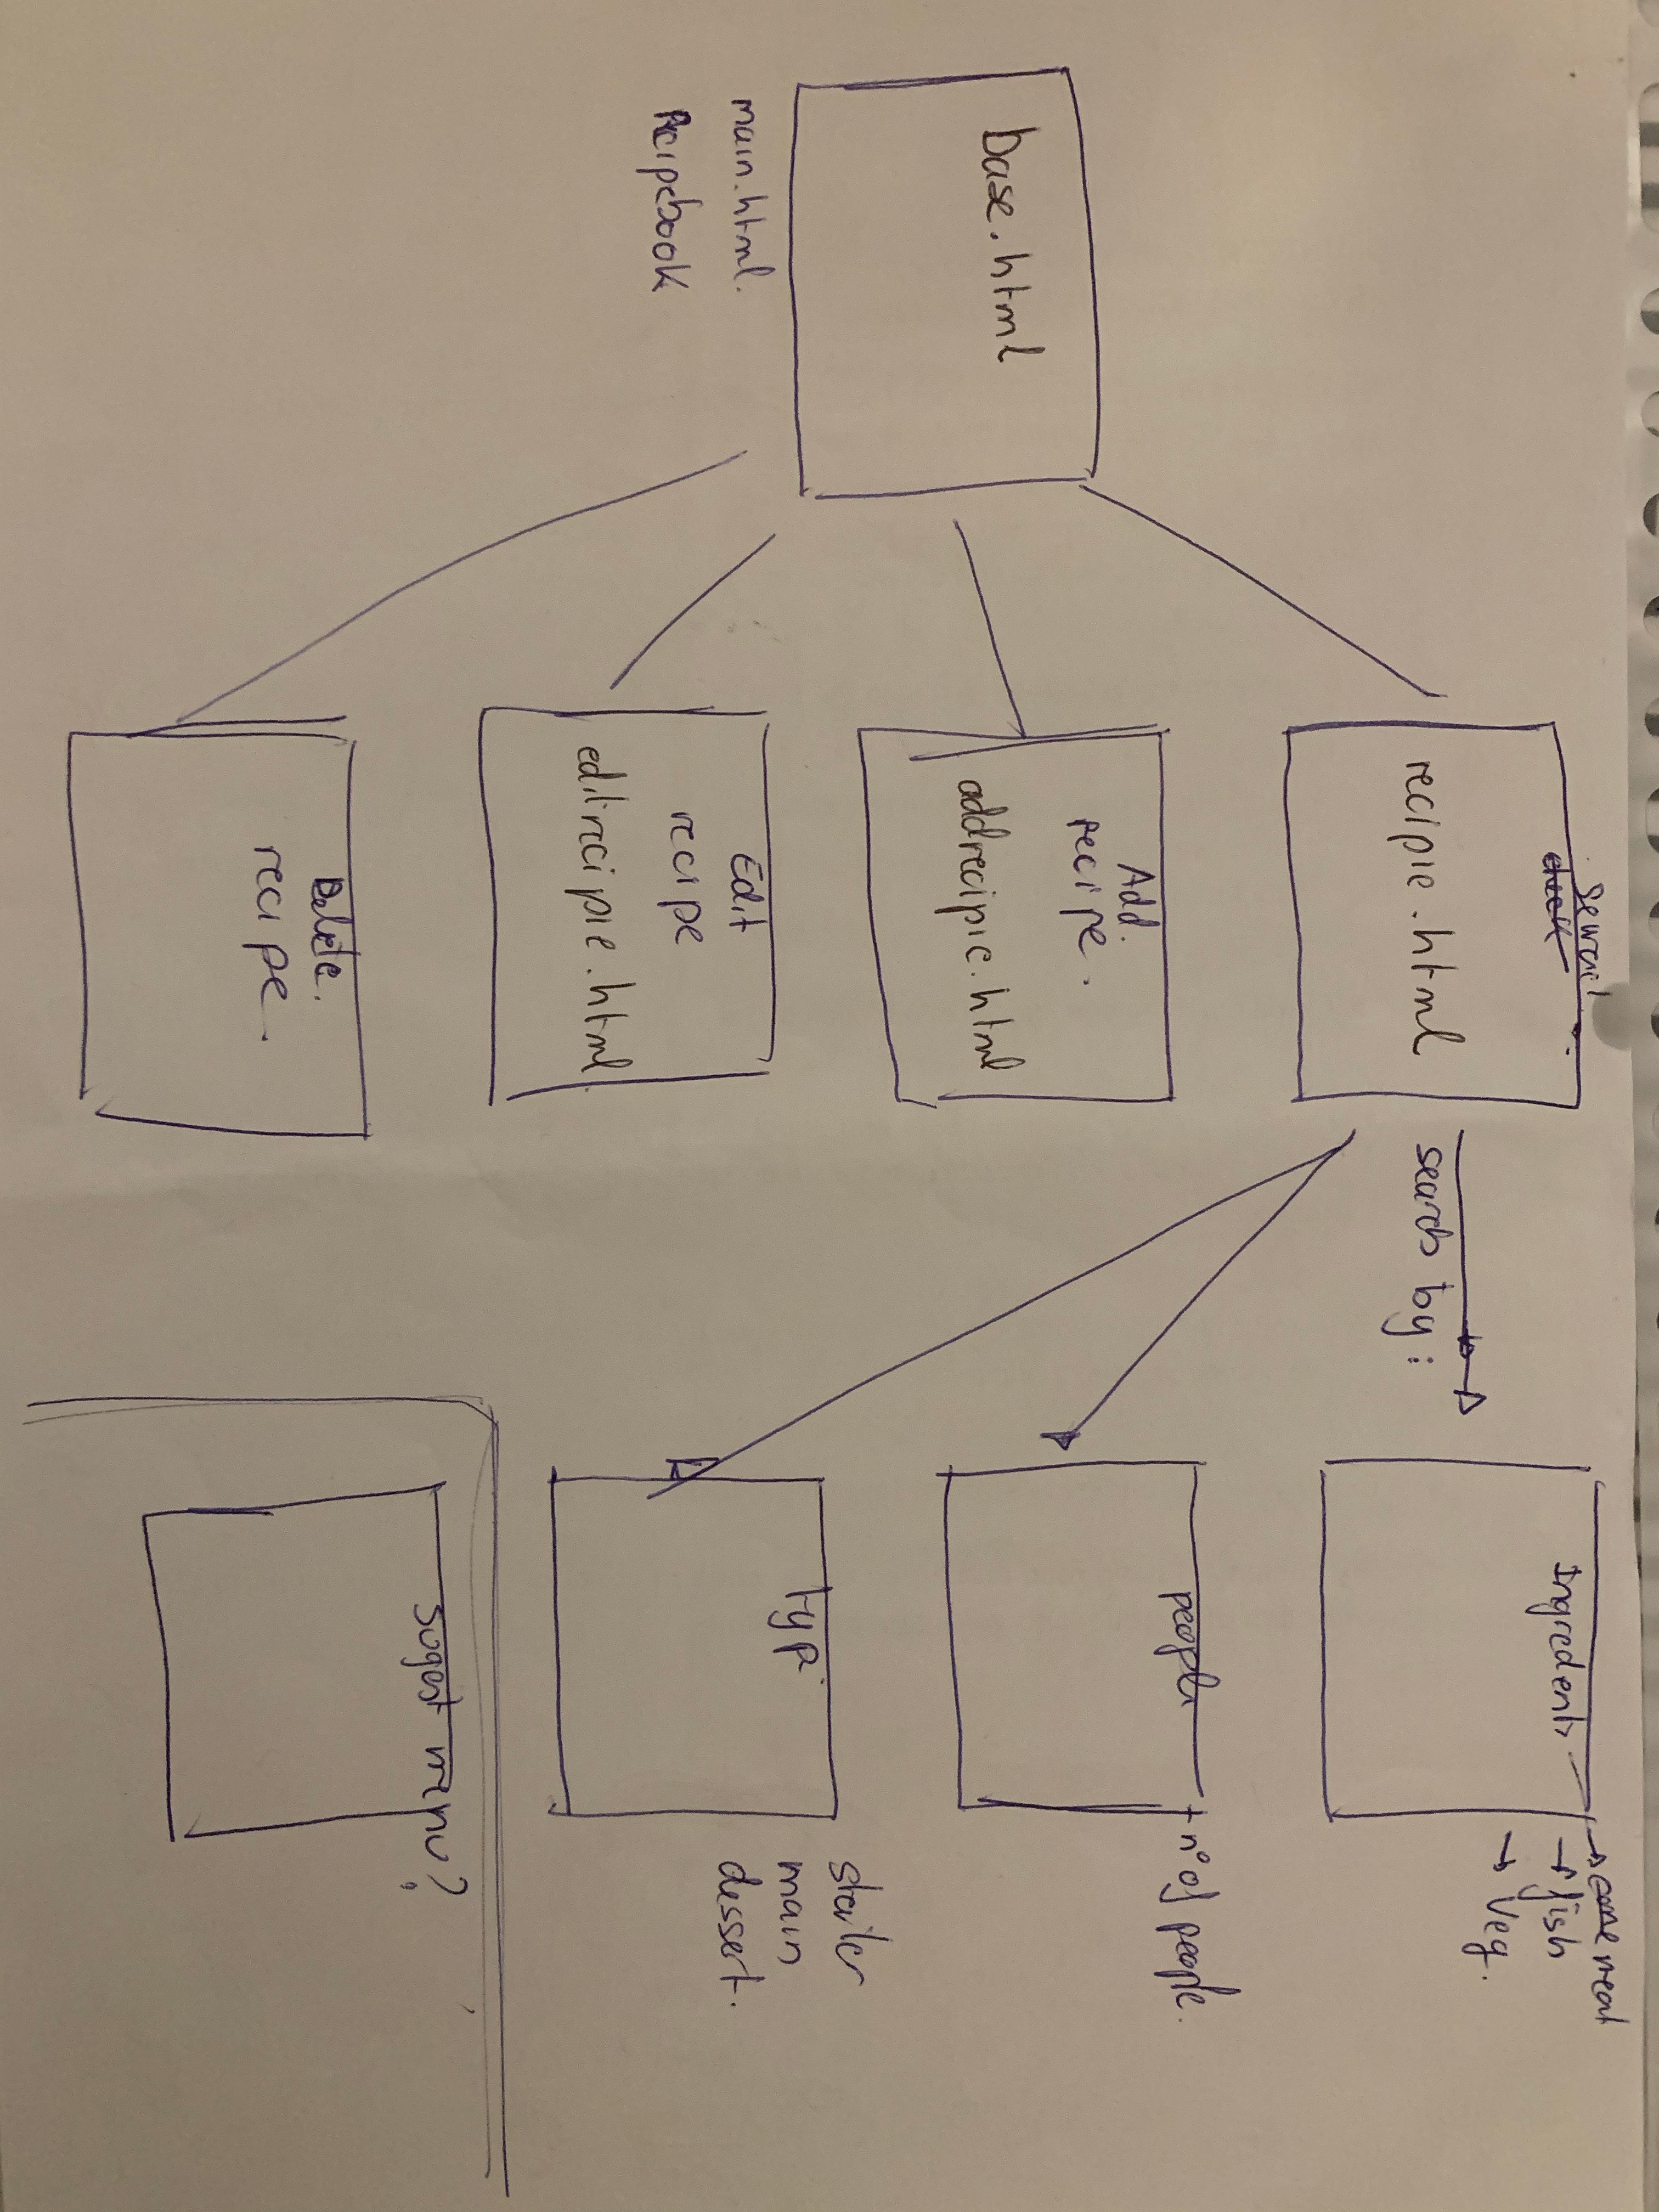 base.html
main.html.
Recipebook
search
recipie.html
Add.
recipe.
addrecipie.html
Edit
recipe
editrecipie.html
Delete.
recipe.
search by:
Ingredients
→ meat
→ fish
→ Veg.
people
n° of people.
Type.
starter
main
dessert.
Sugest menu?